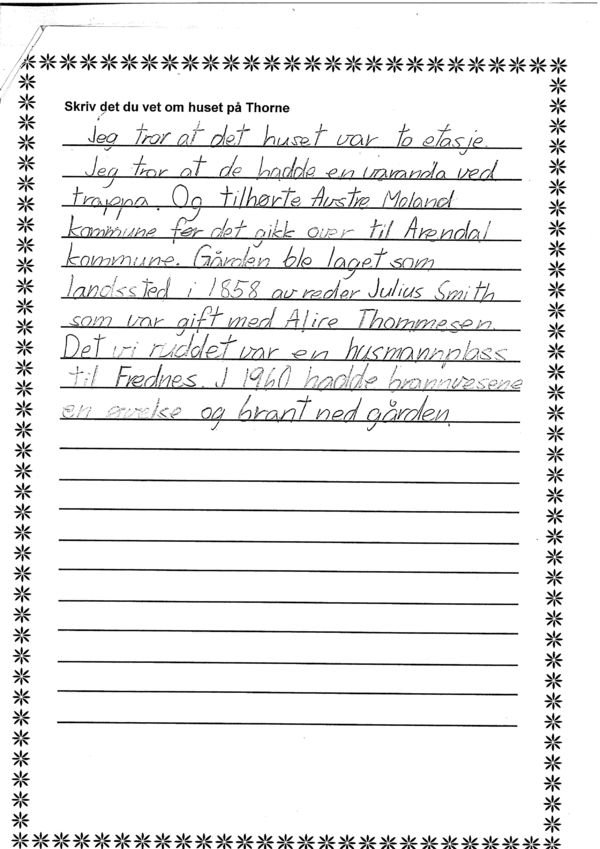 Skriv det du vet om huset på Thorne
Jeg tror at det huset var to etasje.
Jeg tror at de hadde en varanda ved
trappa. Og tilhørte Austre Moland
kommune før det gikk over til Arendal
kommune. Gården ble laget som
landssted i 1858 av reder Julius Smith
som var gift med Alice Thommesen.
Det vi ruddet var en husmannplass
til Frednes. I 1960 hadde brannvesene
en øvelse og brant ned gården.